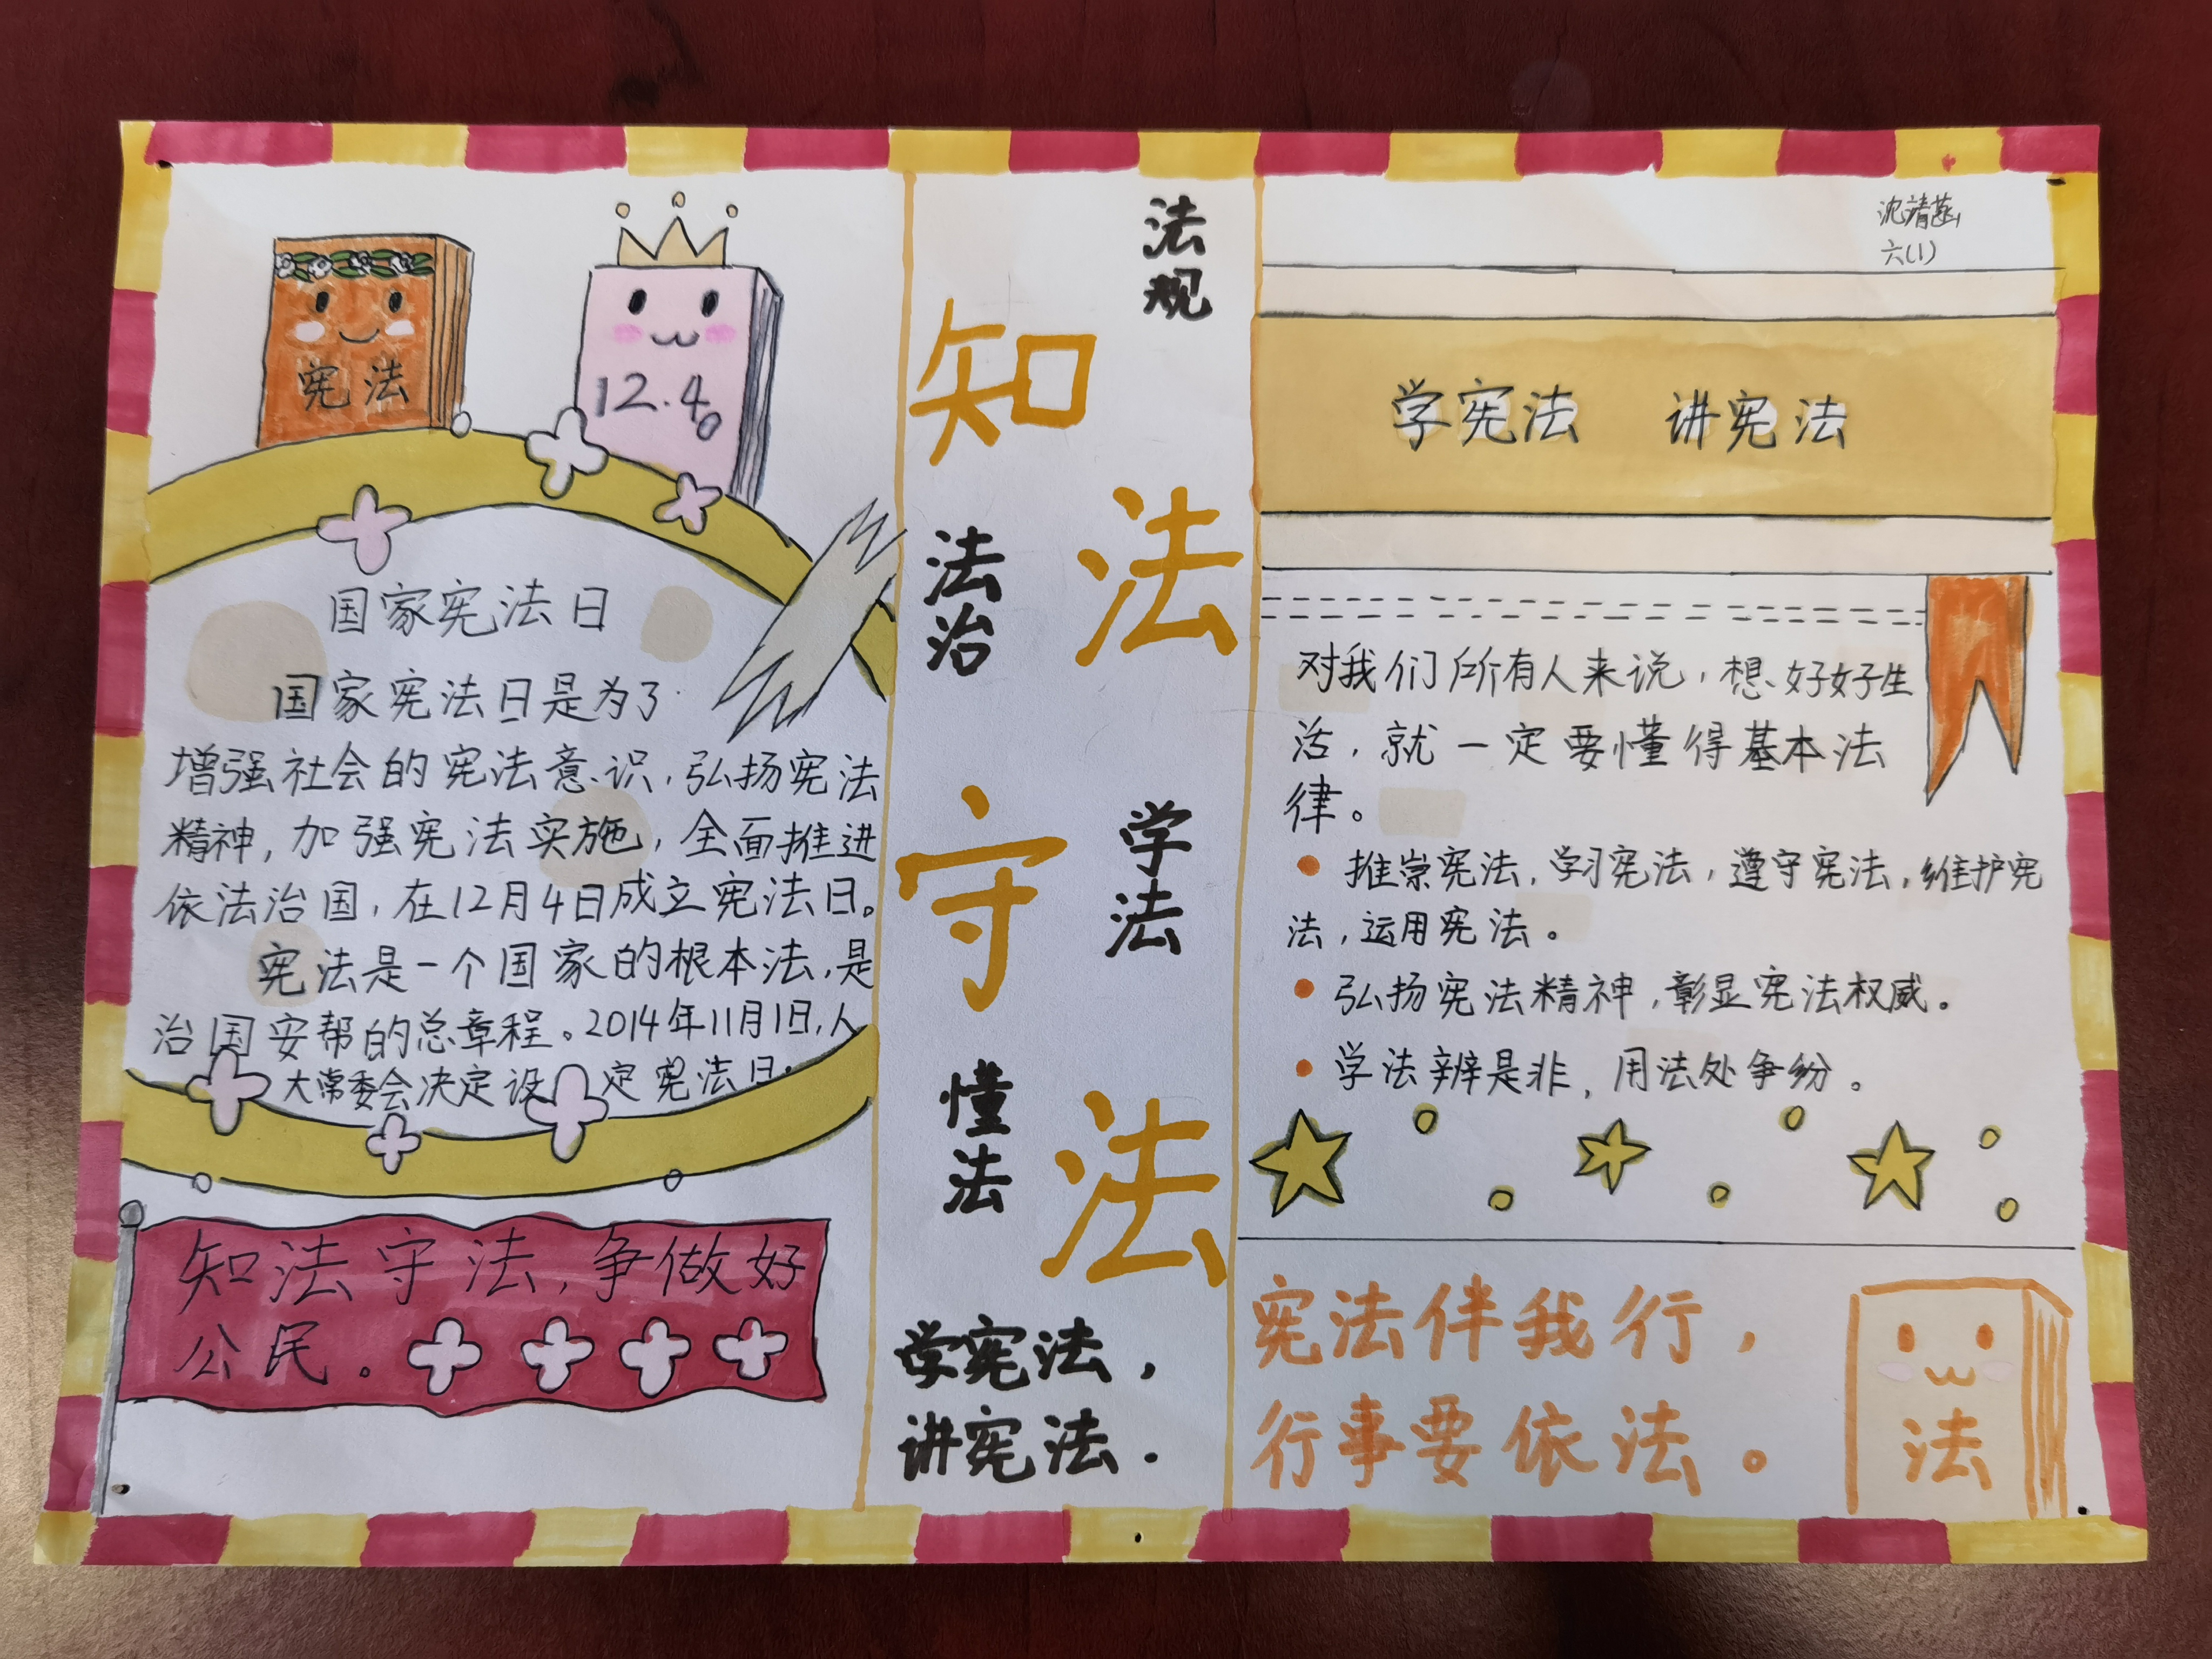 宪法
12.4
国家宪法日
国家宪法日是为了
增强社会的宪法意识，弘扬宪法
精神，加强宪法实施，全面推进
依法治国，在12月4日成立宪法日。
宪法是一个国家的根本法，是
治国安帮的总章程。2014年11月1日，人
大常委会决定设定宪法日.
知法守法，争做好
公民。
法规
知法
法治
守法
学法
懂法
学宪法，
讲宪法.
六(1)
学宪法 讲宪法
对我们所有人来说，想好好生
活，就一定要懂得基本法
律。
推崇宪法，学习宪法，遵守宪法，维护宪
法，运用宪法。
弘扬宪法精神，彰显宪法权威。
学法辨是非，用法处争纷。
宪法伴我行，
行事要依法。
法